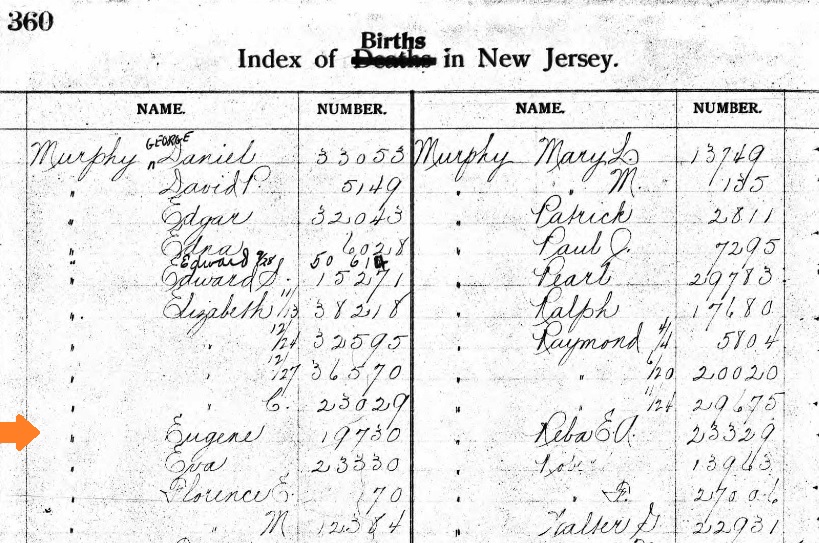 360
Births
Index of Deaths in New Jersey.
NAME. NUMBER. NAME. NUMBER.
GEORGE
Murphy ^Daniel 33053 Murphy Mary L. 13749
" David P. 5149 " " M. 135
" Edgar 32043 " Patrick 2811
" Edna 6028 " Paul J. 7295
" Edward 9/28 50 614
" Edward S. 15271 " Pearl 29783
" Elizabeth 11/13 38218 " Ralph 17680
" " 12/24 32595 " Raymond 4/4 5804
" " 12/27 36570 " " 6/20 20020
" " C. 23029 " " 11/24 29675
" Eugene 19730 " Reba E. 23329
" Eva 23330 " 13963
" Florence E. 70 " " F. 27006
" " M 12384 " Walter G 22931